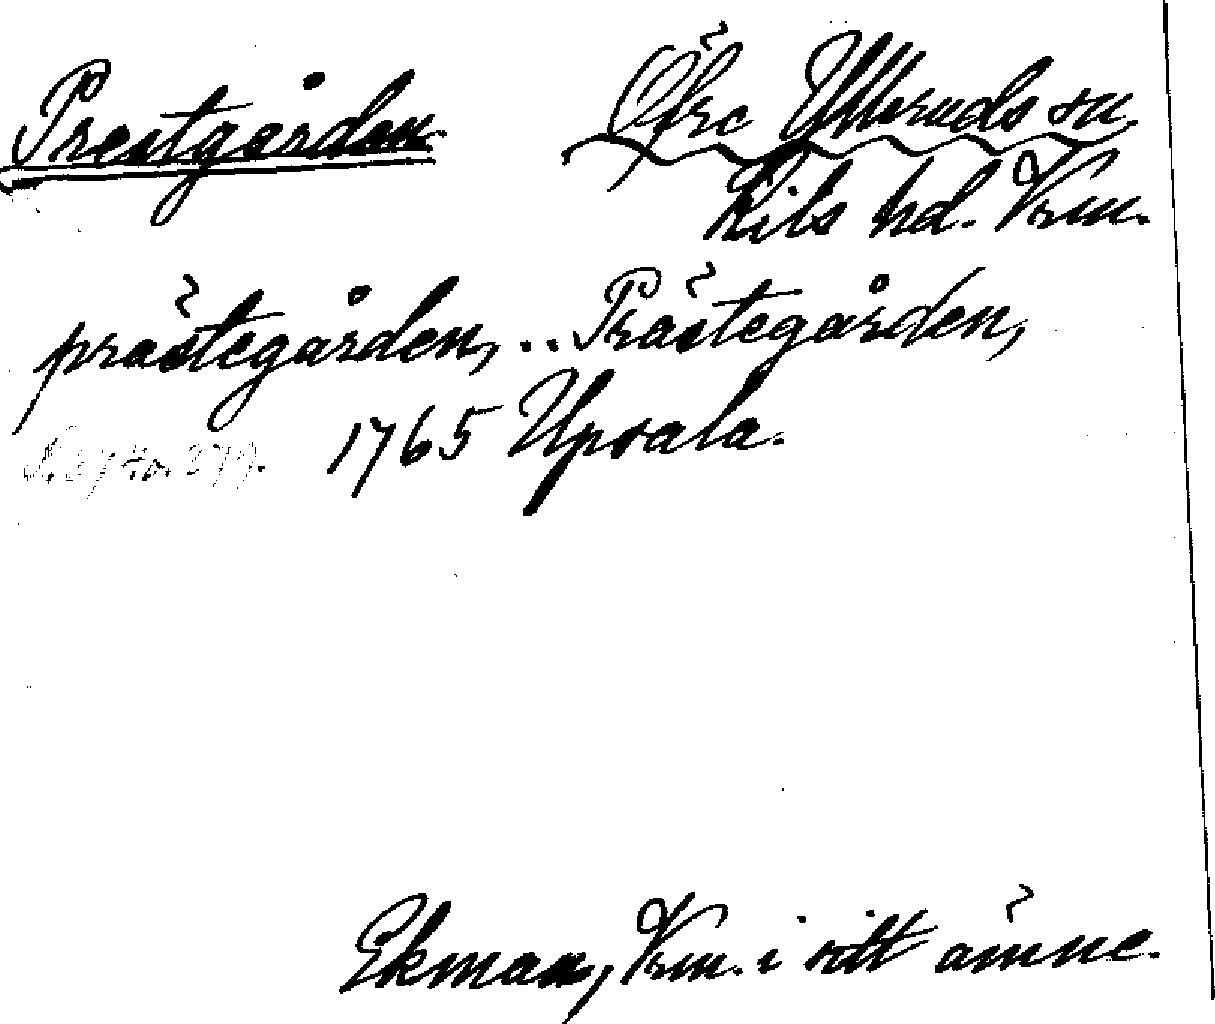 Prestgården. Öfre Ulleruds sn.
Kils hd. Vrm.
prästegården, .. Prästegården,
1765 Upsala.
Ekman, Vrm. i sitt ämne.